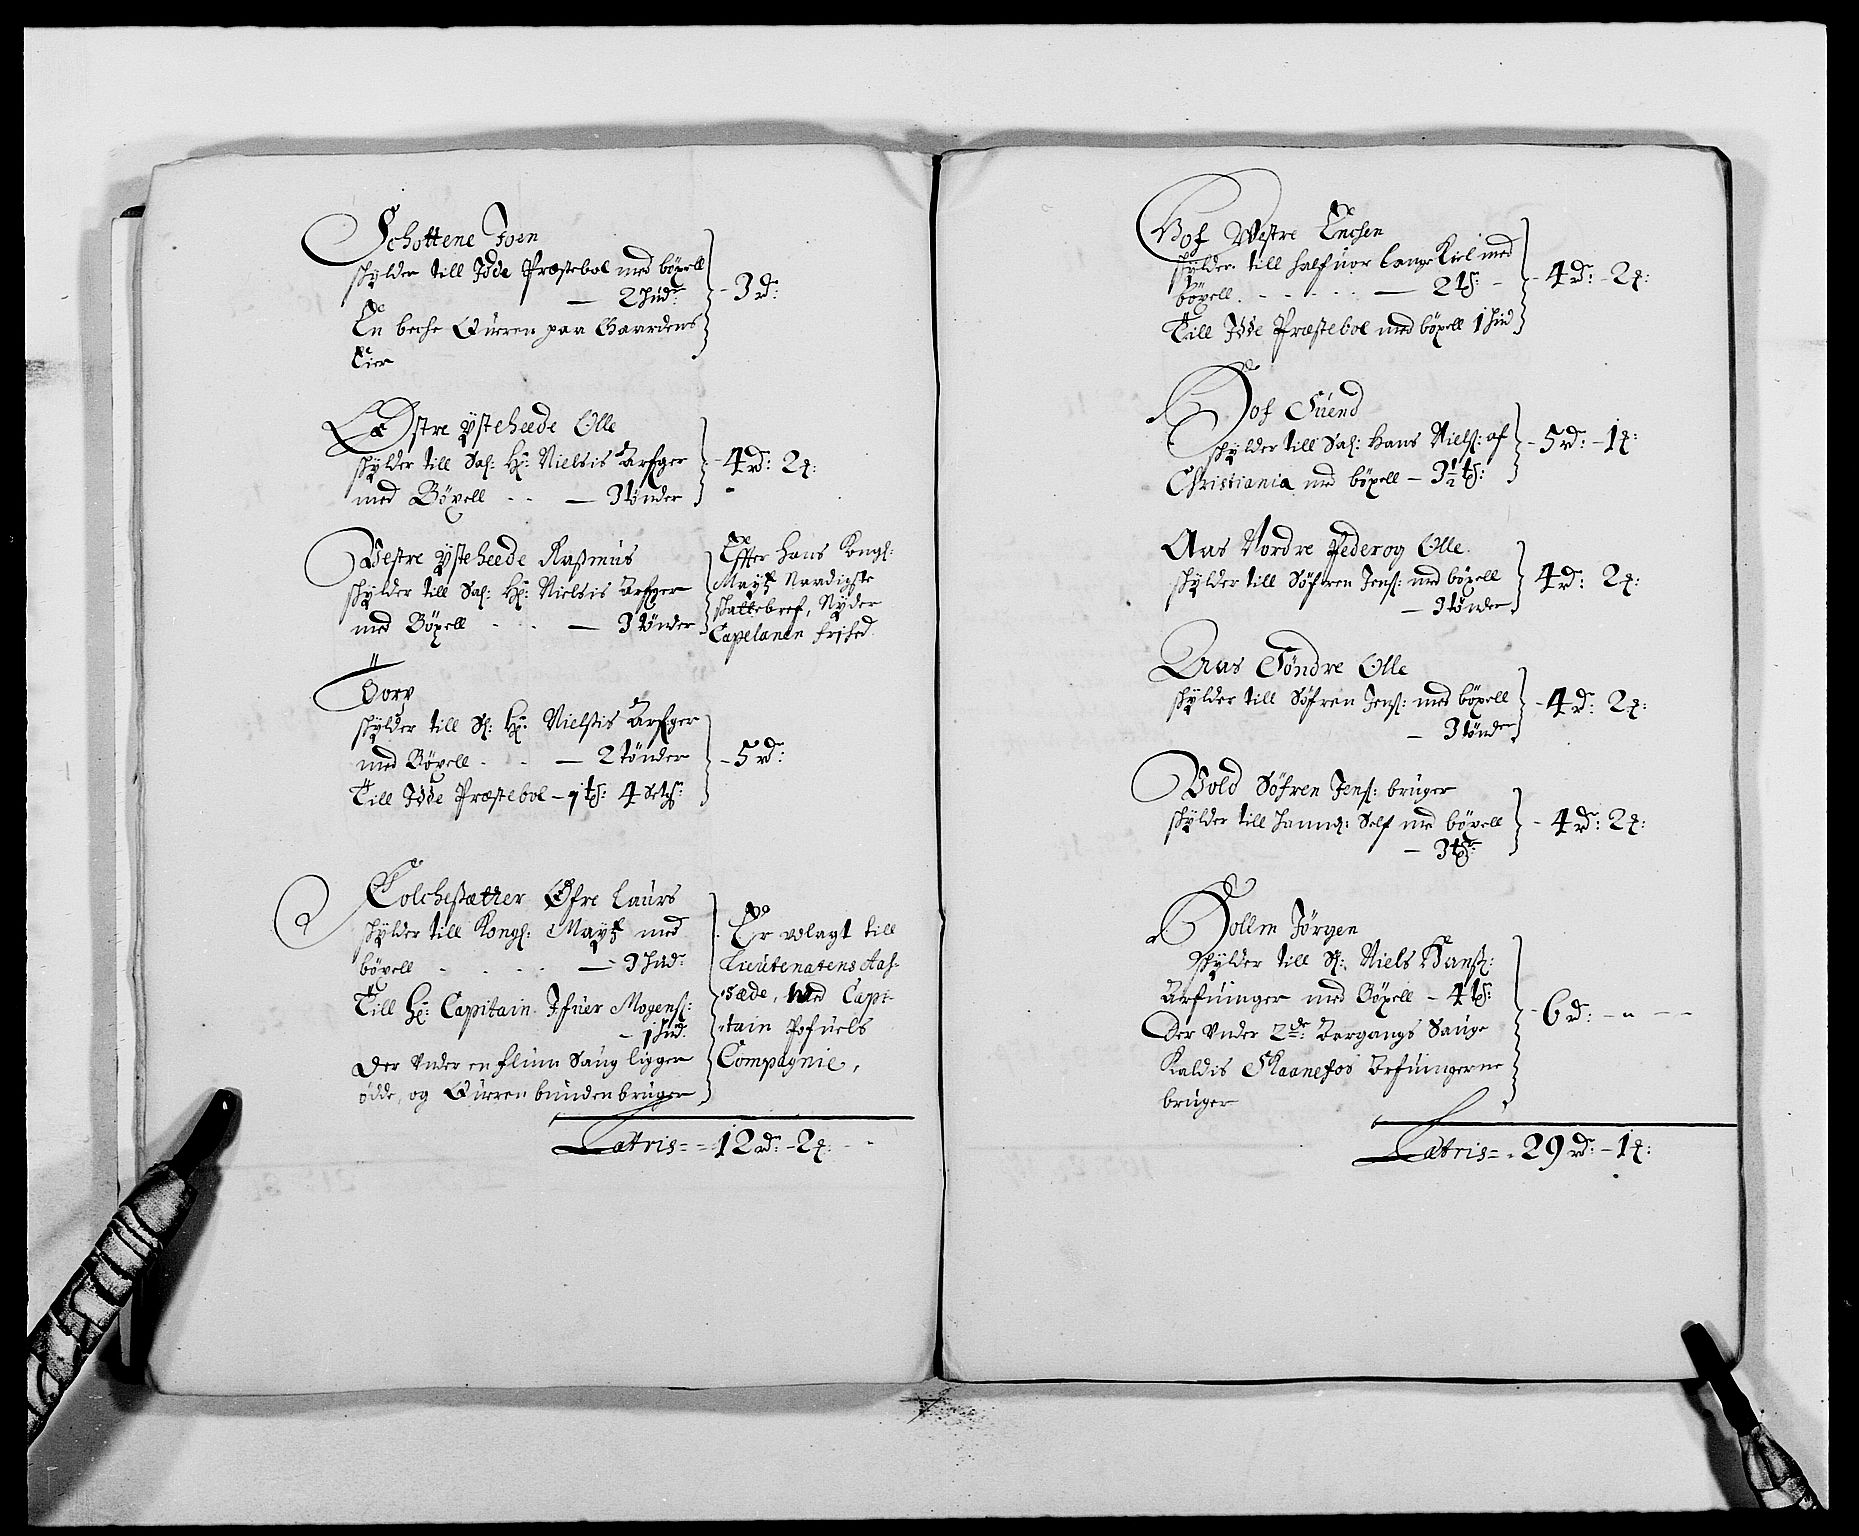 Schottene Joen
skylder till Idde Præstebol med böxell
— 2 hud:
En beche Quern paa Gaardens
Eier
– 3 rd:
Østre ÿstehede Olle
skylder till Sal: Hr: Nielsis Arfger
med Böxell - - — 3 tönder
– 4 rd: 2 ƍ:
Vestre ÿstehede Rasmus
skylder till Sal: Hr: Nielsis Arfger
med Böxell - - — 3 tönder
Effter Hans Kongl:
Maytz Naadigste
skattebref, Nyder
Capelanen frihed
Torp
skylder till Sl: Hr: Nielsis Arfger
med Böxell - - — 2 tönder
Till Idde Præstebol – 1 td: 4 Set:
– 5 rd:
Tolchesætter Øfre Laurs
skylder till Kongl: Maytz med
böxell - - - - — 3 hud:
Till Hr: Capitain Ifuer Mogens:
– 1 hud:
Der under en flum Saug ligger
ödde, og Querren bunden bruger
Er vdlagt till
Lieutenatens Aas-
sæde, wed Capi-
tain Pofuels
Compagnie,
Latris = – 12 rd: – 2 ƍ: - -
Hof Westre Enchen
skylder till halfuor lange Kiel med
böxell - - - - - — 2 td: -
Till Idde Præstebol med böxell 1 hud
– 4 rd: – 2 ƍ:
Hof Suend
skylder till Sal: Hans Niels: af
Christiania med böxell – 3½ td:
– 5 rd: – 1 ƍ:
Aas Nordre Peder og Olle
skylder till Söfren Jens: med böxell
— 3 tönder
4 rd: 2 ƍ:
Aas Söndre Olle
skylder till Söfren Jens: med böxell
— 3 tönder
– 4 rd: 2 ƍ:
Vold Söfren Jens: bruger
skylder till hannd: Self med böxell
— 3 td:
– 4 rd: 2 ƍ:
Hollm Jörgen
skylder till Sl: Niels Hans:
Arfuinger med Böxell – 4 td:
Der under 2de: Borgangs Sauge
Kaldis Skaanefos Arfuingerne
bruger
– 6 rd: – „ – –
Latris = – 29 rd: – 1 ƍ: